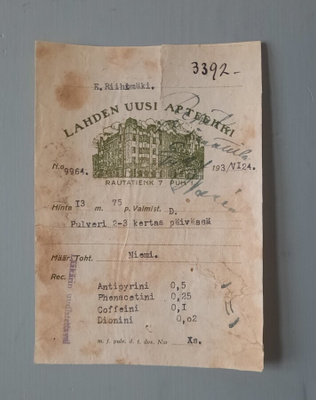 3392-
E. Riihimäki.
LAHDEN UUSI APTEEKKI
RAUTATIENK 7 PUH.
N:o 9964. 193 /VI24.
Hinta 13 m. 75 p. Valmist. D.
Pulveri 2-3 kertaa päivässä
Määr. Toht. Niemi.
Rec.
Antipyrini 0,5
Phenacetini 0,25
Coffeini 0,I
Dionini 0,02
m. f. pulv. d. t. dos. N:o Xa.